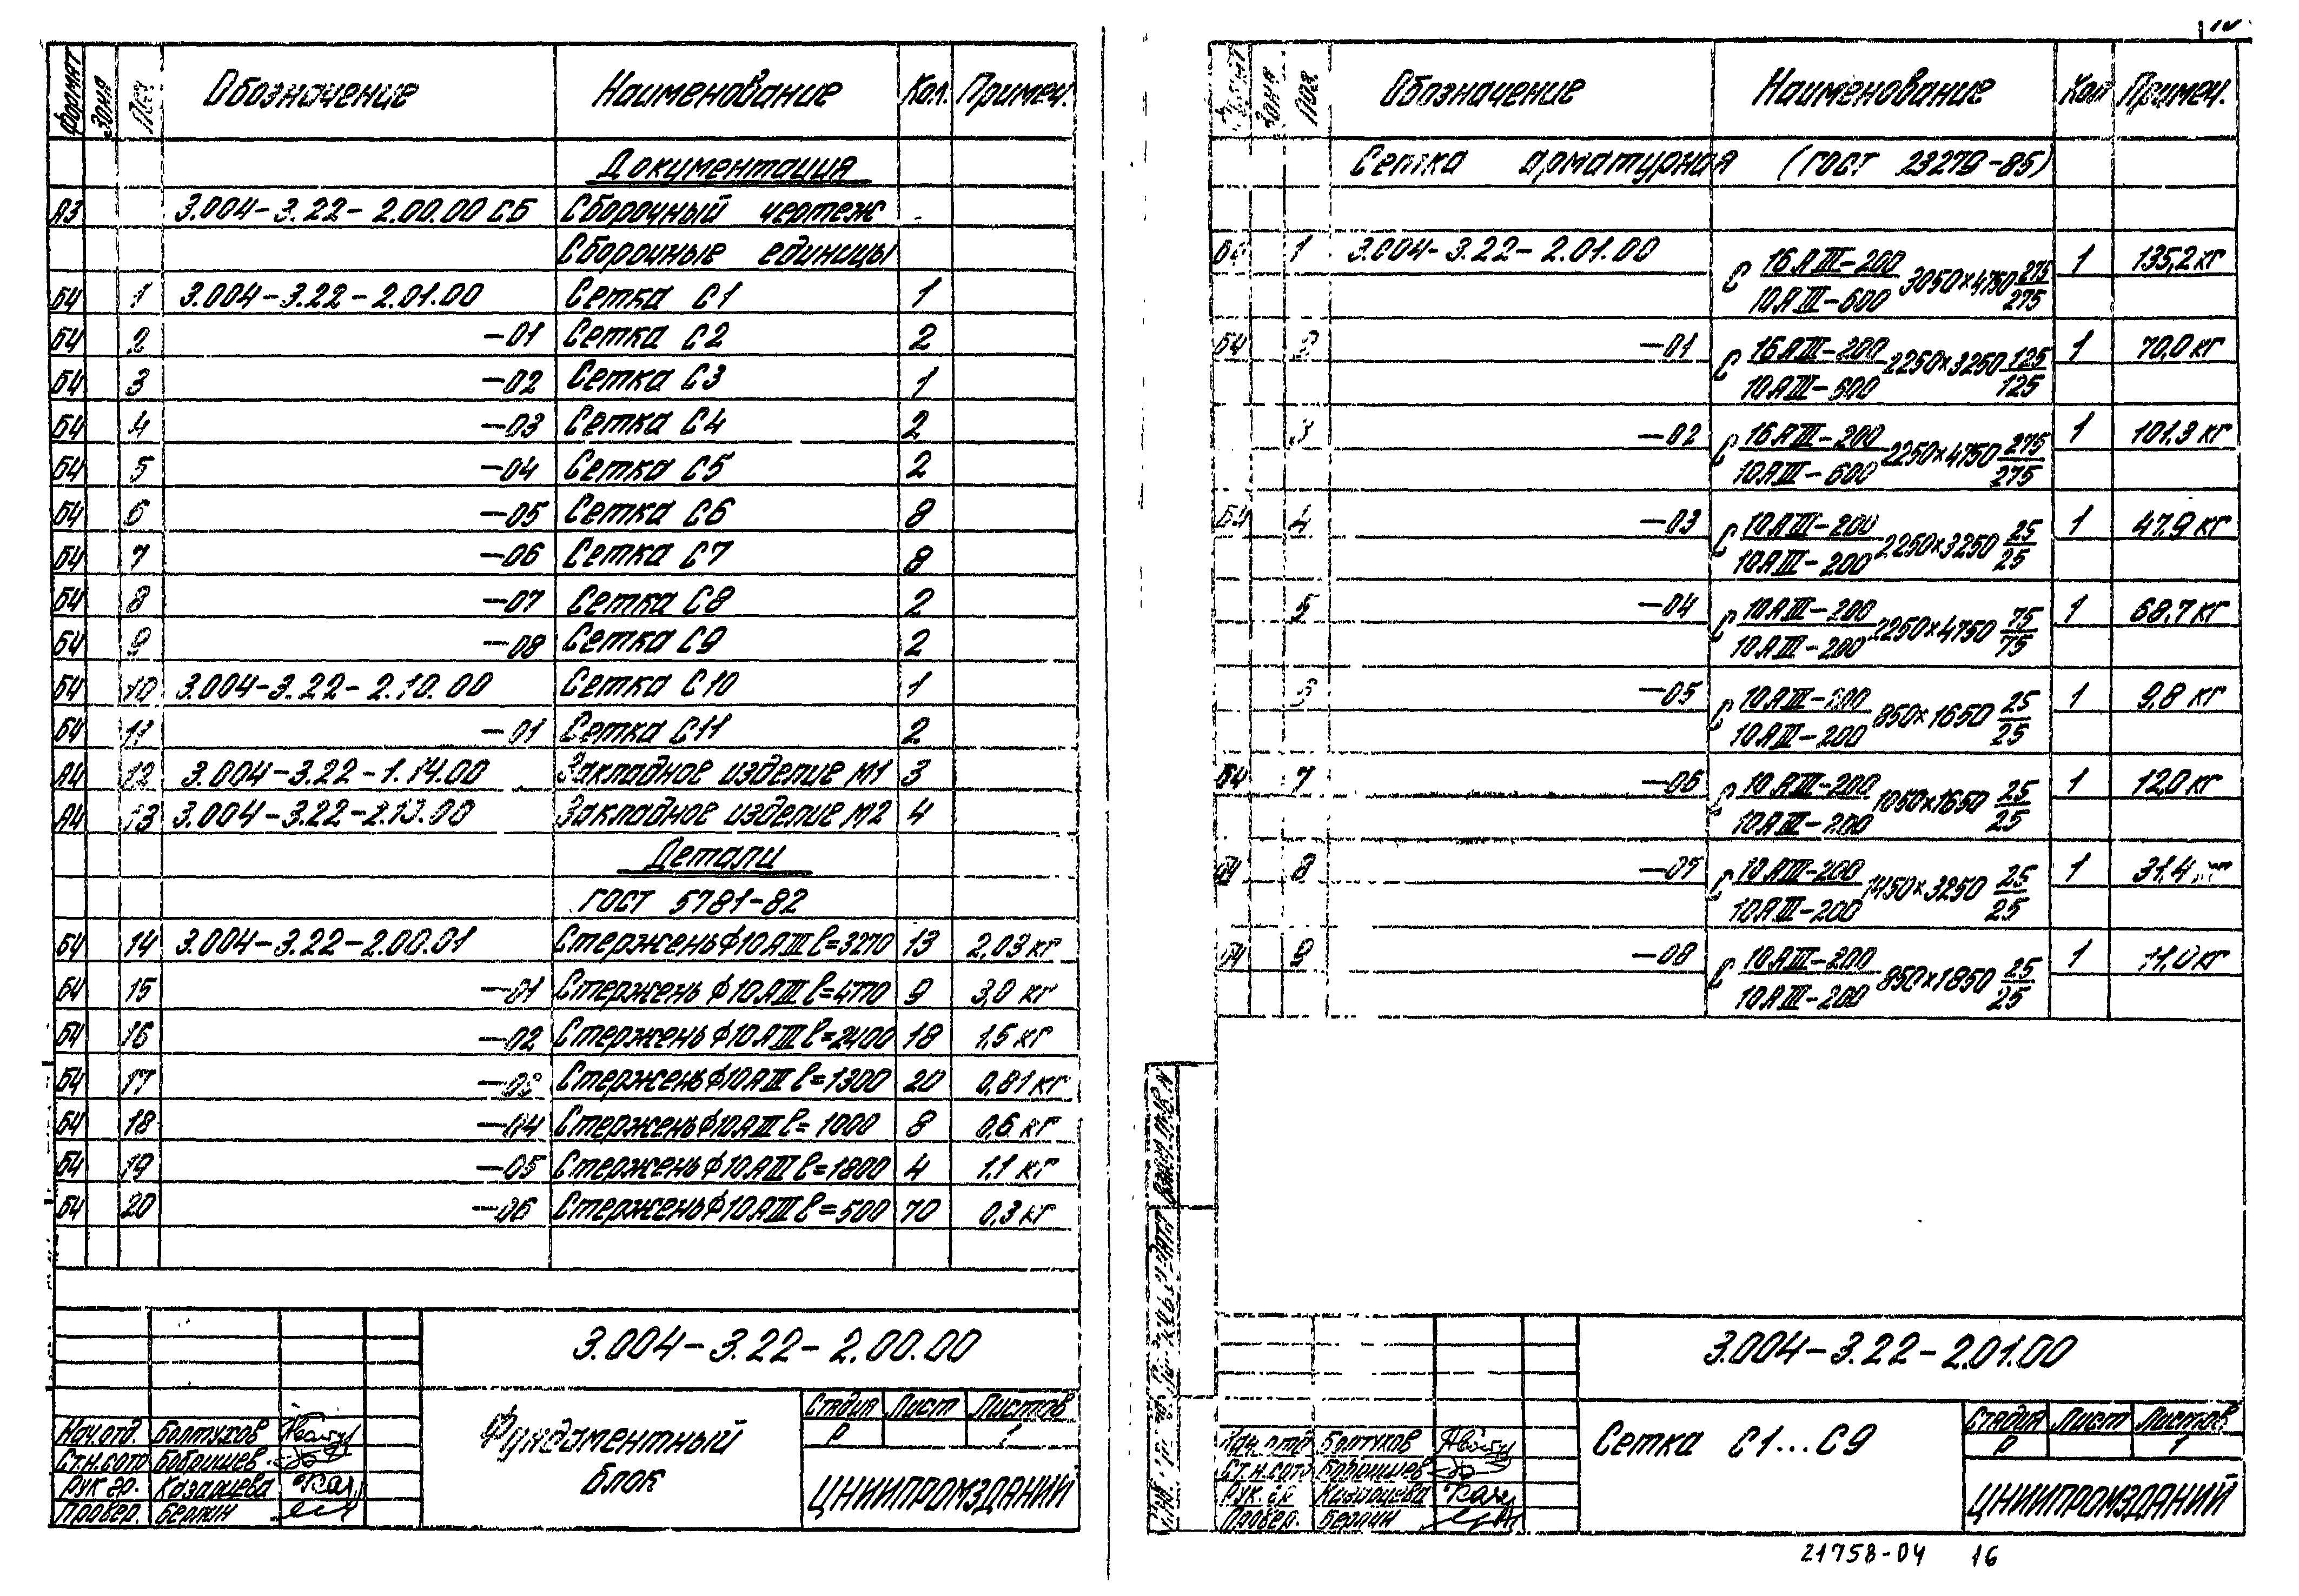 Формат Зона Поз. Обозначение Наименование Кол. Примеч.
Документация
А3 3.004-3.22-2.00.00 СБ Сборочный чертеж
Сборочные единицы
БЧ 1 3.004-3.22-2.01.00 Сетка С1 1
БЧ 2 -01 Сетка С2 2
БЧ 3 -02 Сетка С3 1
БЧ 4 -03 Сетка С4 2
БЧ 5 -04 Сетка С5 2
БЧ 6 -05 Сетка С6 8
БЧ 7 -06 Сетка С7 8
БЧ 8 -07 Сетка С8 2
БЧ 9 -08 Сетка С9 2
БЧ 10 3.004-3.22-2.10.00 Сетка С10 1
БЧ 11 -01 Сетка С11 2
А4 12 3.004-3.22-1.14.00 Закладное изделие М1 3
А4 13 3.004-3.22-2.13.00 Закладное изделие М2 4
Детали
ГОСТ 5781-82
БЧ 14 3.004-3.22-2.00.01 Стержень ф10АIII ℓ=3270 13 2,03 кг
БЧ 15 -01 Стержень ф10АIII ℓ=4770 9 3,0 кг
БЧ 16 -02 Стержень ф10АIII ℓ=2400 18 1,5 кг
БЧ 17 -03 Стержень ф10АIII ℓ=1300 20 0,81 кг
БЧ 18 -04 Стержень ф10АIII ℓ=1000 8 0,6 кг
БЧ 19 -05 Стержень ф10АIII ℓ=1800 4 1.1 кг
БЧ 20 -06 Стержень ф10АIII ℓ=500 70 0,3 кг
3.004-3.22-2.00.00
Фундаментный
блок
Стадия Лист Листов
Р 1
ЦНИИПРОМЗДАНИЙ
Нач.отд. Болтухов
Ст.н.сотр Бобрышев
Рук гр. Казарцева
Провер. Берлин
Зона Поз. Обозначение Наименование Кол Примеч.
Сетка арматурная (ГОСТ 23279-85)
БЧ 1 3.004-3.22-2.01.00 С 16АIII-200/10АIII-600 3050×4750 275/275 1 135,2 кг
БЧ 2 -01 С 16АIII-200/10АIII-600 2250×3250 125/125 1 70,0 кг
3 -02 С 16АIII-200/10АIII-600 2250×4750 275/275 1 101.3 кг
БЧ 4 -03 С 10АIII-200/10АIII-200 2250×3250 25/25 1 47.9 кг
5 -04 С 10АIII-200/10АIII-200 2250×4750 75/75 1 68,7 кг
6 -05 С 10АIII-200/10АIII-200 850×1650 25/25 1 9,8 кг
БЧ 7 -06 С 10АIII-200/10АIII-200 1050×1650 25/25 1 12,0 кг
БЧ 8 -07 С 10АIII-200/10АIII-200 1450×3250 25/25 1 31,4 кг
БЧ 9 -08 С 10АIII-200/10АIII-200 850×1850 25/25 1 11,0 кг
3.004-3.22-2.01.00
Сетка С1...С9
Стадия Лист Листов
Р 1
ЦНИИПРОМЗДАНИЙ
Нач.отд Болтухов
Ст.н.сотр Бобрышев
Рук.гр Казарцева
Провер. Берлин
21758-04 16